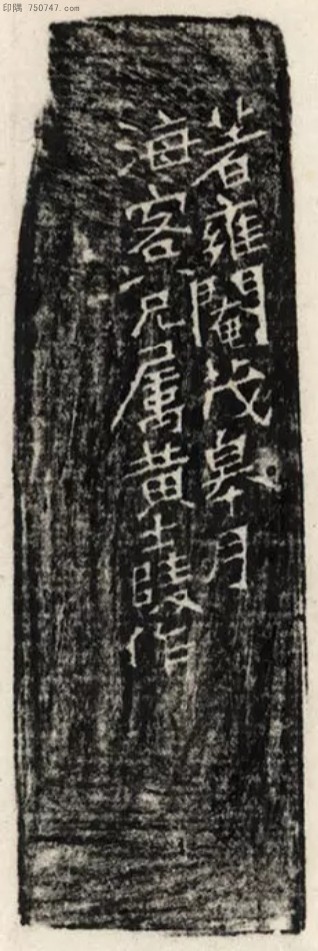 印隅 750747.com
著雍閹茂皋月
海客兄属黄士陵作